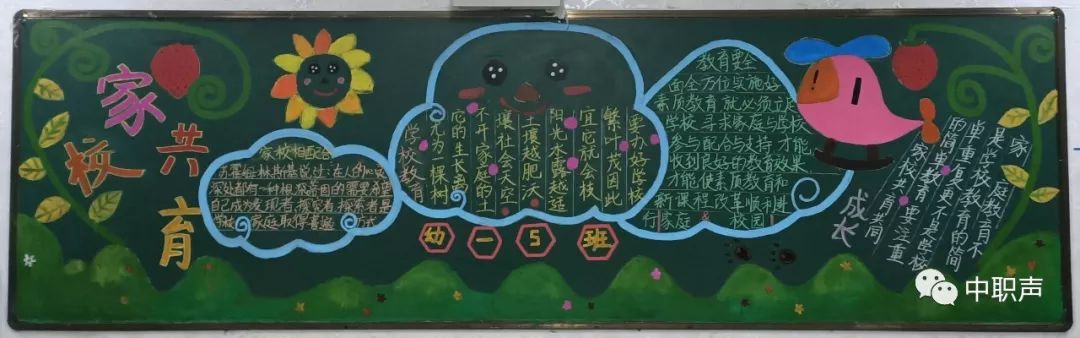 家
校
共
育
家校相配合
苏霍姆林斯基说过:在人的心灵
深处都有一种根深蒂固的需要希望
自己成为发现者 探究者 探索者是
学校 家庭取得
学校教育
尤为一棵树
它的生长离
不开家庭的土
壤社会天空
土壤越肥沃
阳光水露越适
宜它就会枝
繁叶茂因此
要办好学校
教育要全
面全方位实施好
素质教育就必须立足
学校 寻求家庭与学校
参与配合与支持 才能
收到良好的教育效果
才能使素质教育和
新课程改革顺利进
行家庭 & 校园
家庭教育不
是学校教育的简
单重复更不是学校
的简单教育要注重
家校共育共同
成长
幼一5班
中职声